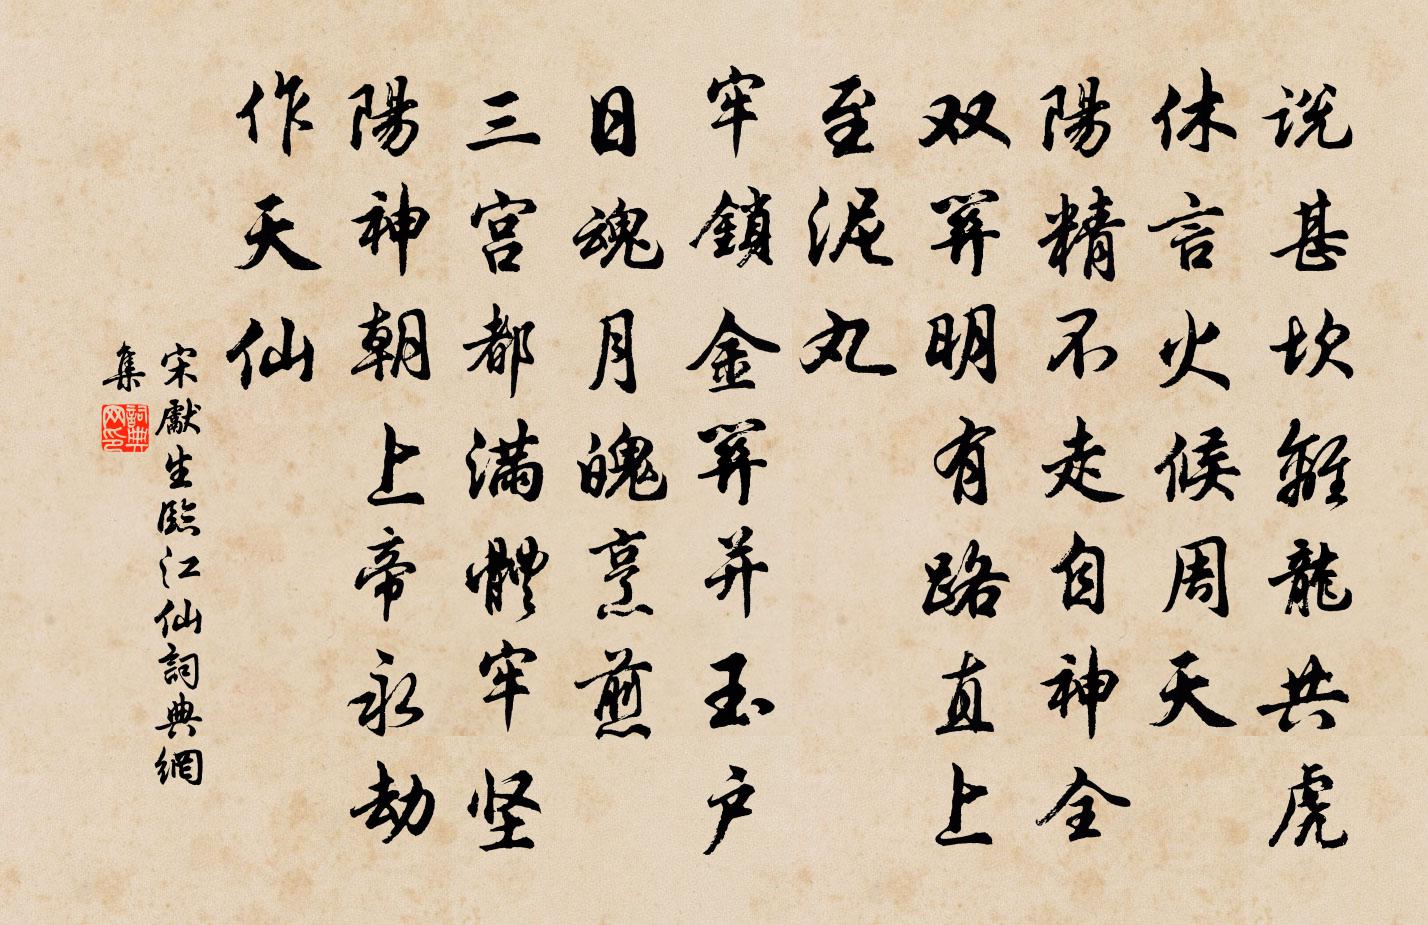 说甚坎離龍共虎
休言火候周天
陽精不走自神全
双關明有路直上
至泥丸
牢鎖金關并玉户
日魂月魄烹煎
三宫都满體牢坚
陽神朝上帝永劫
作天仙
宋獻生臨江仙詞典網
集
詞典网印